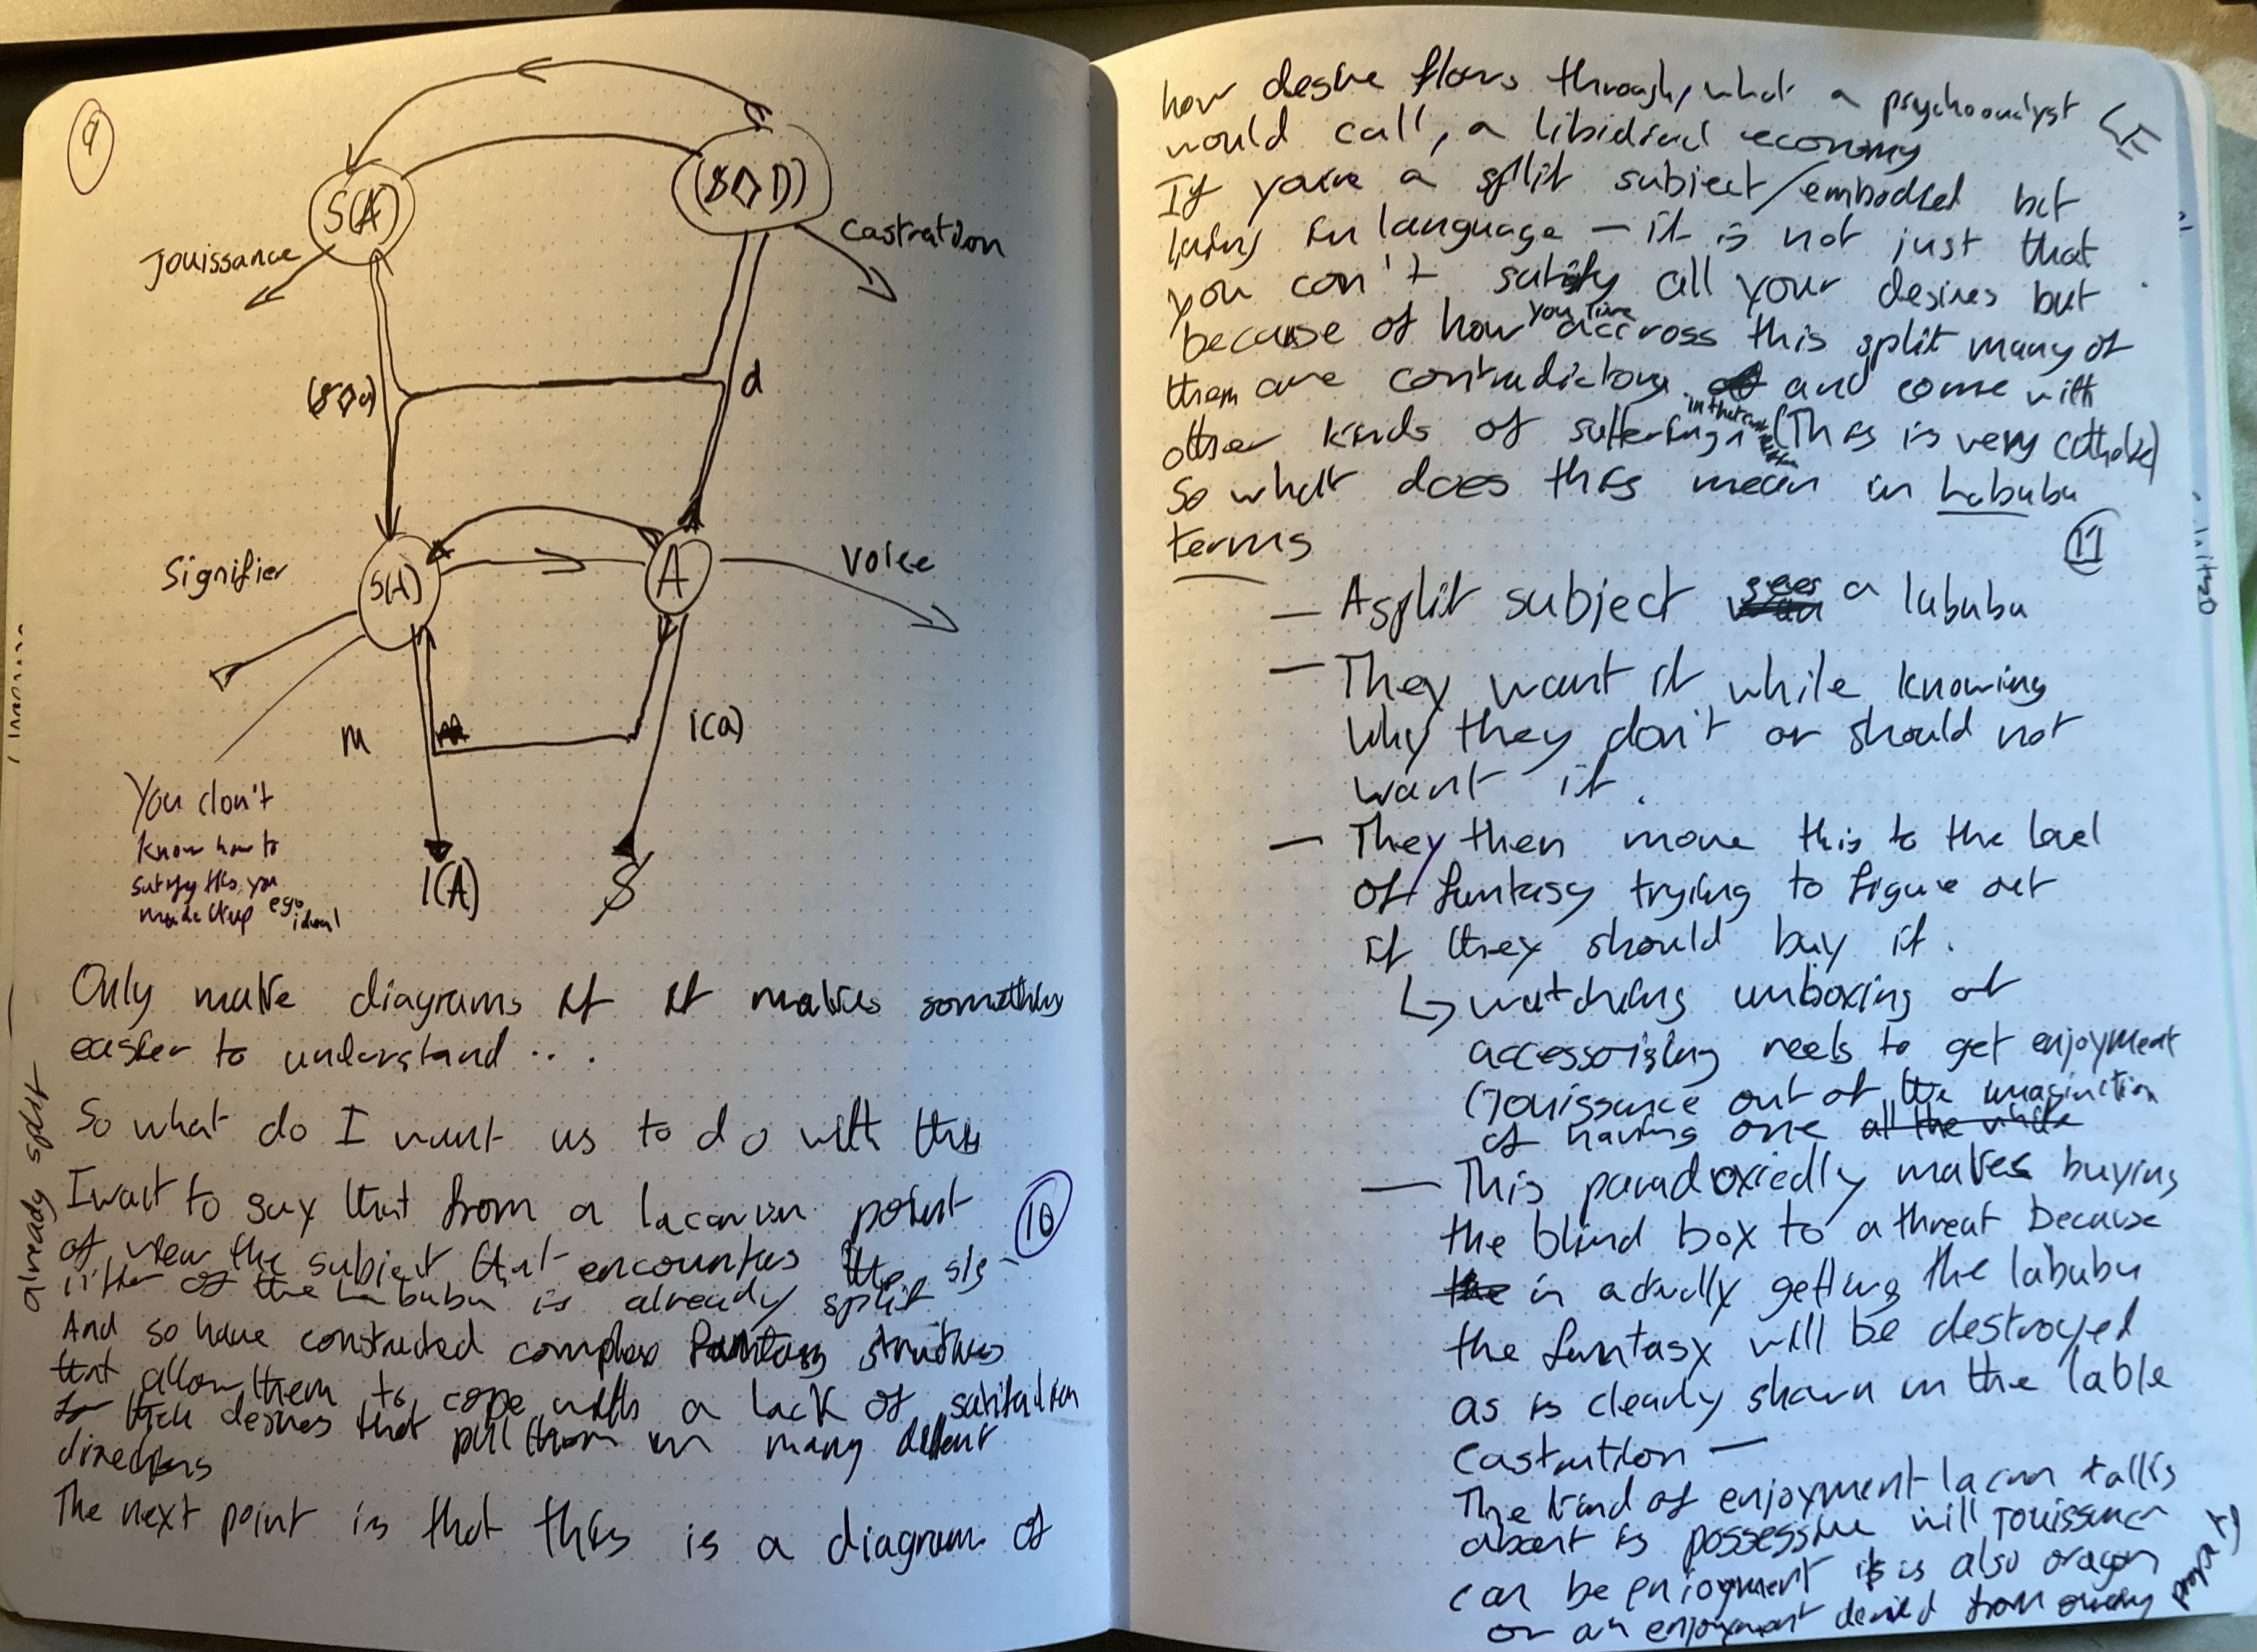 9
S(Ⱥ)
($◊D)
Jouissance
Castration
($◊a)
d
Signifier
S(A)
A
Voice
m
i(a)
You don't
know how to
satisfy this you
made it up ego
ideal
I(A)
$
Only make diagrams if it makes something
easier to understand ...
So what do I want us to do with this
I want to say that from a lacanian point
10
of view the subject that encounters the sig-
nifier of the Labubu is already split
already split
And so have constructed complex fantasy structures
that allow them to cope with a lack of satisfaction
desires that pull them in many different
directions
The next point is that this is a diagram of
how desire flows through, what a psychoanalyst
would call, a libidinal economy
LE
If you're a split subject/embodied but
living in language – it is not just that
you can't satisfy all your desires but
because of how you live accross this split many of
them are contradictory and come with
other kinds of suffering in that contradiction (This is very catholic)
So what does this mean in Labubu
terms
11
— A split subject sees a labubu
— They want it while knowing
why they don't or should not
want it.
— They then move this to the level
of fantasy trying to figure out
if they should buy it.
↳ watching unboxing or
accessorising reels to get enjoyment
(Jouissance out of the imagination
of having one all the while
— This paradoxiedly makes buying
the blind box to a threat because
the in actually getting the labubu
the fantasy will be destroyed
as is clearly shown in the lable
Castration —
The kind of enjoyment lacan talks
about is possessive will Jouissance
can be enjoyment it is also
or an enjoyment derived from owning property